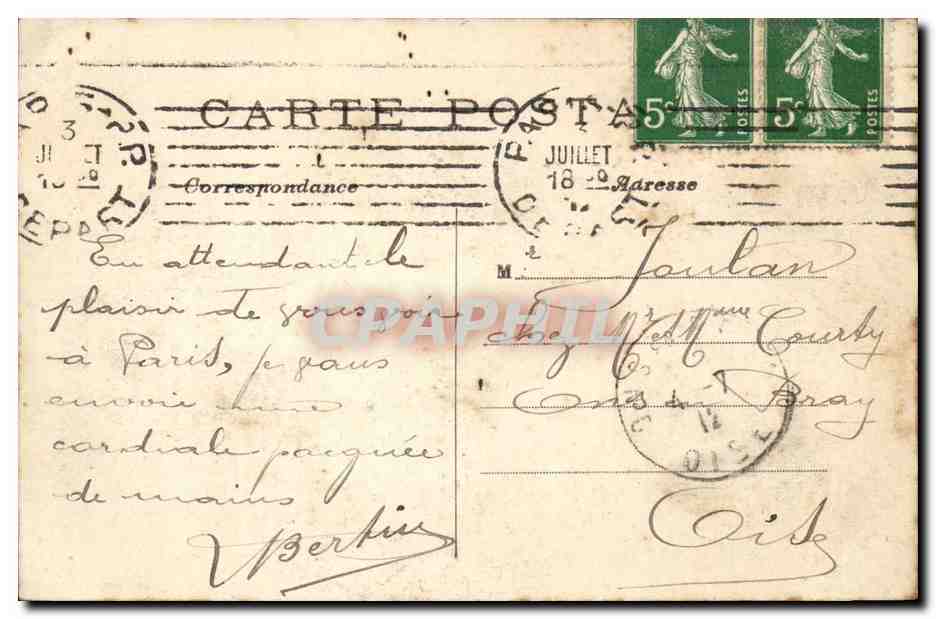 CARTE POSTA
5c POSTES
5c POSTES
3
JUILLET
18
PARIS
3
JUILLET
18
DEPART
Correspondance
Adresse
En attendant le
plaisir de vous voir
à Paris, je vous
envoie une
cordiale poignée
de mains
Bertin
M. Joulan
chez Mr et Mme Courty
Ons en Bray
Oise
4
12
OISE
CPAPHIL